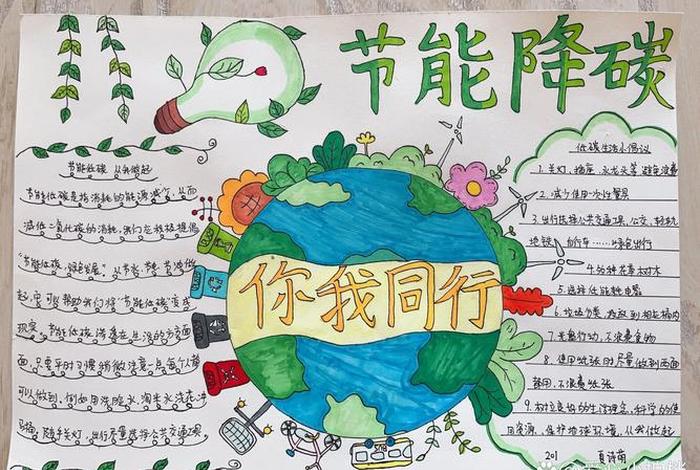 节能降碳
你我同行
节能低碳 从我做起
节能低碳是指消耗的能源减少，从而
减低二氧化碳的消耗，我们应该积极提倡
"节能低碳，绿色发展"。从节水、节
起，也可以帮助我们将"节能低碳"变成
现实，节能低碳渗透在生活的方方面
面，只要平时习惯稍微注意一点每个人都
可以做到，例如用洗脸水、淘米水浇花、冲
马桶，随手关灯，出行尽量选择公共交通工具。
低碳生活小倡议
1.关灯、插座、水龙头等，避免浪费
2.减少使用一次性餐具
3.出行选择公共交通工具，公交、轻轨、
地铁、自行车……绿色出行
4.多种花草树木
5.选择低能耗电器
6.垃圾分类，投放到相应桶内
7.光盘行动，不浪费食物
8.使用纸张时尽量做到两面
都用，不浪费纸张
9.树立良好的生活理念，科学的使
用资源，保护地球环境，从我做起
201 夏诗萌